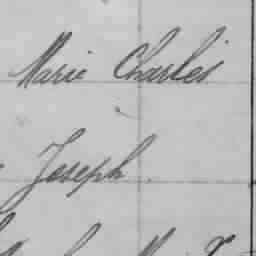 Marie Charles
Joseph